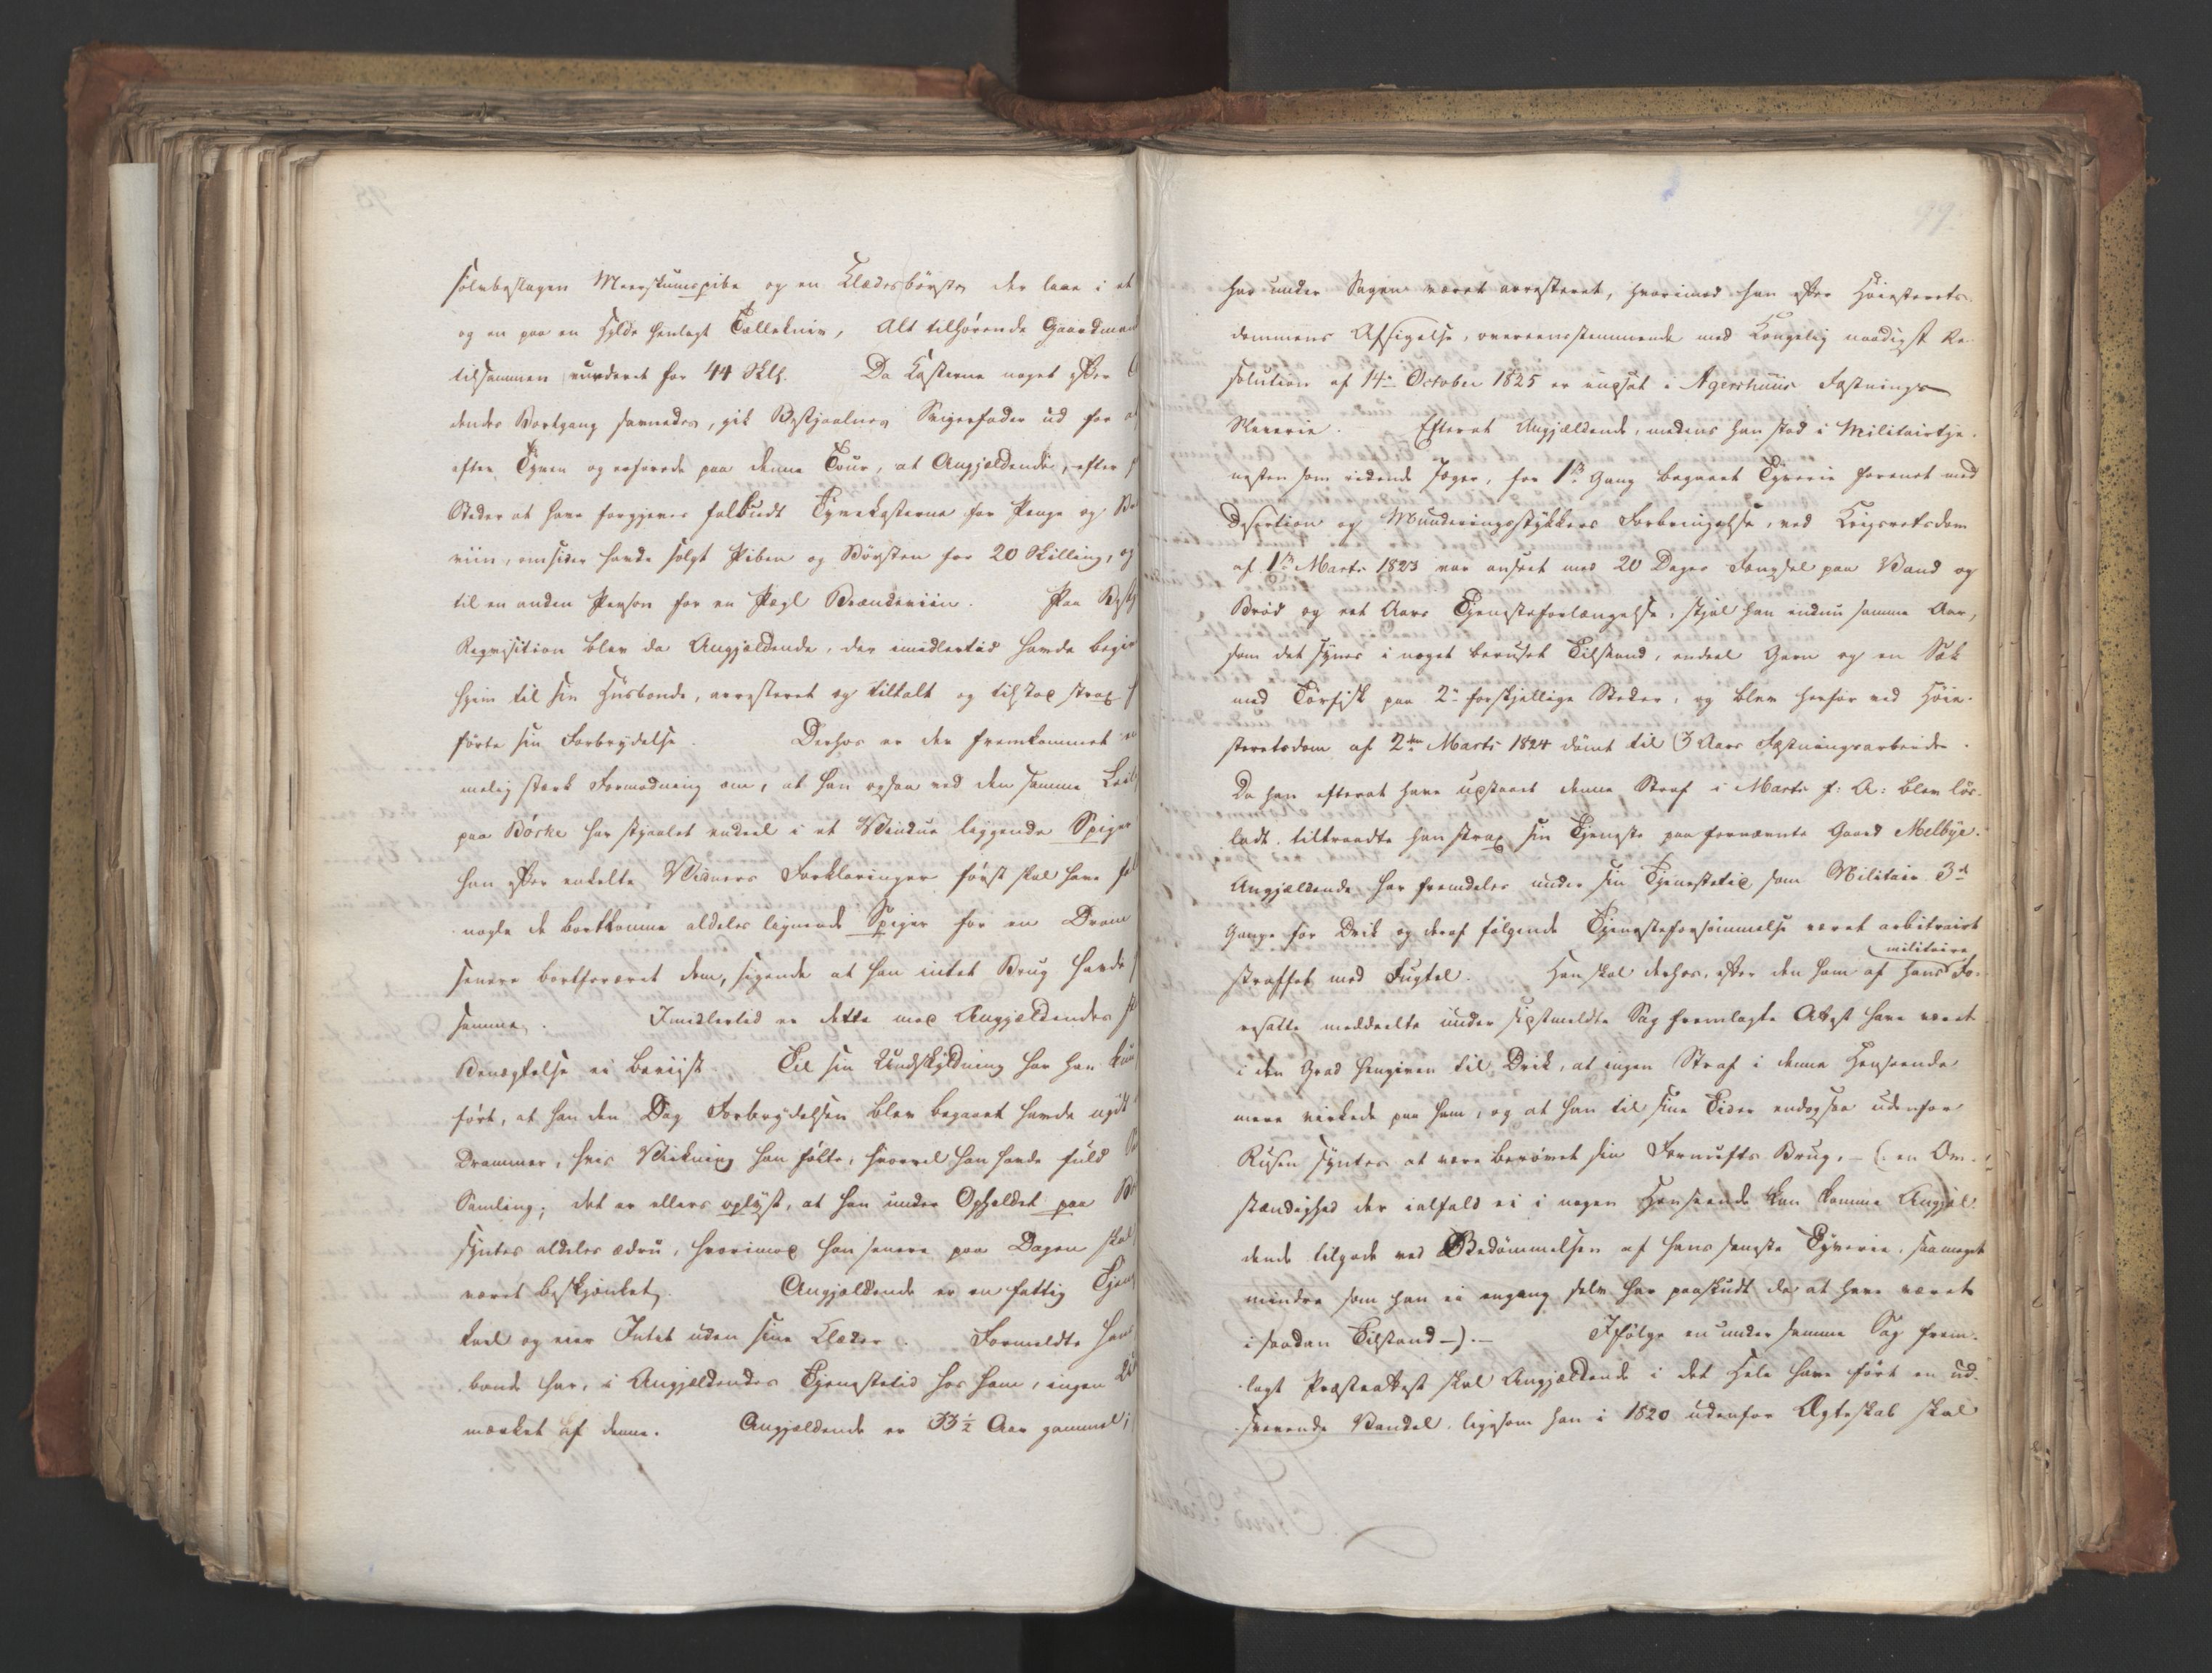 sölvbeslagen Meerskumspibe og en Klædesbörste der laae i et
og en paa en Hylde henlagt Tællekniv, Alt tilhørende Gaardmand
tilsammen vurderet for 44 Sklg. Da Kosterne noget efter
dendes Bortgang savnedes, gik Bestjaalnes Svigerfader ud for
efter Tyven og erfarede paa denne Tour, at Angjældende, efter
Steder at have forgjeves falbudt Tyvekosterne for Penge og
viin, omsider havde solgt Piben og Börsten for 20 Skilling, og
til en anden Person for en Pægl Brændeviin. Paa
Reqvisition blev da Angjældende, der imidlertid havde begivet
hjem til sin Husbonde, arresteret og tiltalt og tilstod strax
förte sin Forbrydelse. Derhos er der fremkommet en
melig stærk Formodning om, at han ogsaa ved den samme
paa Börke har stjaalet endeel i et Vindue liggende Spiger
han efter enkelte Vidners Forklaringer først skal have
nogle de bortkomne aldeles lignende Spiger for en Dram
senere bortforæret dem, sigende at han intet Brug havde
samme. Imidlertid er dette mod Angjældendes
Benægtelse ei beviist. Til sin Undskyldning har han kun
fört, at han den Dag Forbrydelsen blev begaaet havde nydt
Drammer, hvis Virkning han følte, hvorvel han havde fuld
Samling; det er ellers oplyst, at han under Opholdet paa
syntes aldeles ædru, hvorimod han senere paa Dagen skal
været beskjænket. Angjældende er en fattig
karl og eier Intet uden sine Klæder. Formeldte
bonde har, i Angjældendes Tjenestetid hos ham, ingen
mærket af denne. Angjældende er 33 1/2 Aar gammel;
har under Sagen været arresteret, hvorimod han efter Höiesterets-
dommens Afsigelse, overeensstemmende med Kongelig naadigst Re-
solution af 14de October 1825 er indsat i Agershuus Fæstnings
Slaverie. Efterat Angjældende, medens han stod i Militairtje-
nesten som ridende Jæger, for 1ste Gang begaaet Tyverie forenet med
Desertion og Munderingsstykkers Forbringelse, ved Krigsretsdom
af 1ste Marts 1823 var anseet med 20 Dages Fængsel paa Vand og
Bröd og eet Aars Tjenesteforlængelse, stjal han endnu samme Aar,
som det synes i noget beruset Tilstand, endeel Garn og en Sæk
med Törfisk paa 2de forskjellige Steder, og blev herfor ved Höie-
steretsdom af 2den Marts 1824 dömt til 3 Aars Fæstningsarbeide.
Da han efterat have udstaaet denne Straf i Marts f: A: blev lös-
ladt, tiltraadte han strax sin Tjeneste paa fornævnte Gaard Melbye.
Angjældende har fremdeles under sin Tjenestetid som Militair 3de
Gange for Drik og deraf fölgende Tjenesteforsömmelse været arbitrairt
straffet med Fugtel. Han skal derhos, efter den ham af hans militaire Fo-
resatte meddeelte under sidstmeldte Sag fremlagte Attest have været
i den Grad hengiven til Drik, at ingen Straf i denne Henseende
mere virkede paa ham, og at han til sine Tider endogsaa udenfor
Rusen syntes at være berövet sin Fornufts Brug, – (: en Om-
stændighed der ialfald ei i nogen Henseende kan komme Angjæl-
dende tilgode ved Bedömmelsen af hans seneste Tyverie, saameget
mindre som han ei engang selv har paaskudt da at have været
i saadan Tilstand –). – Ifölge en under samme Sag frem-
lagt Præsteattest skal Angjældende i det Hele have fört en ud-
svævende Vandel, ligesom han i 1820 udenfor Ægteskab skal